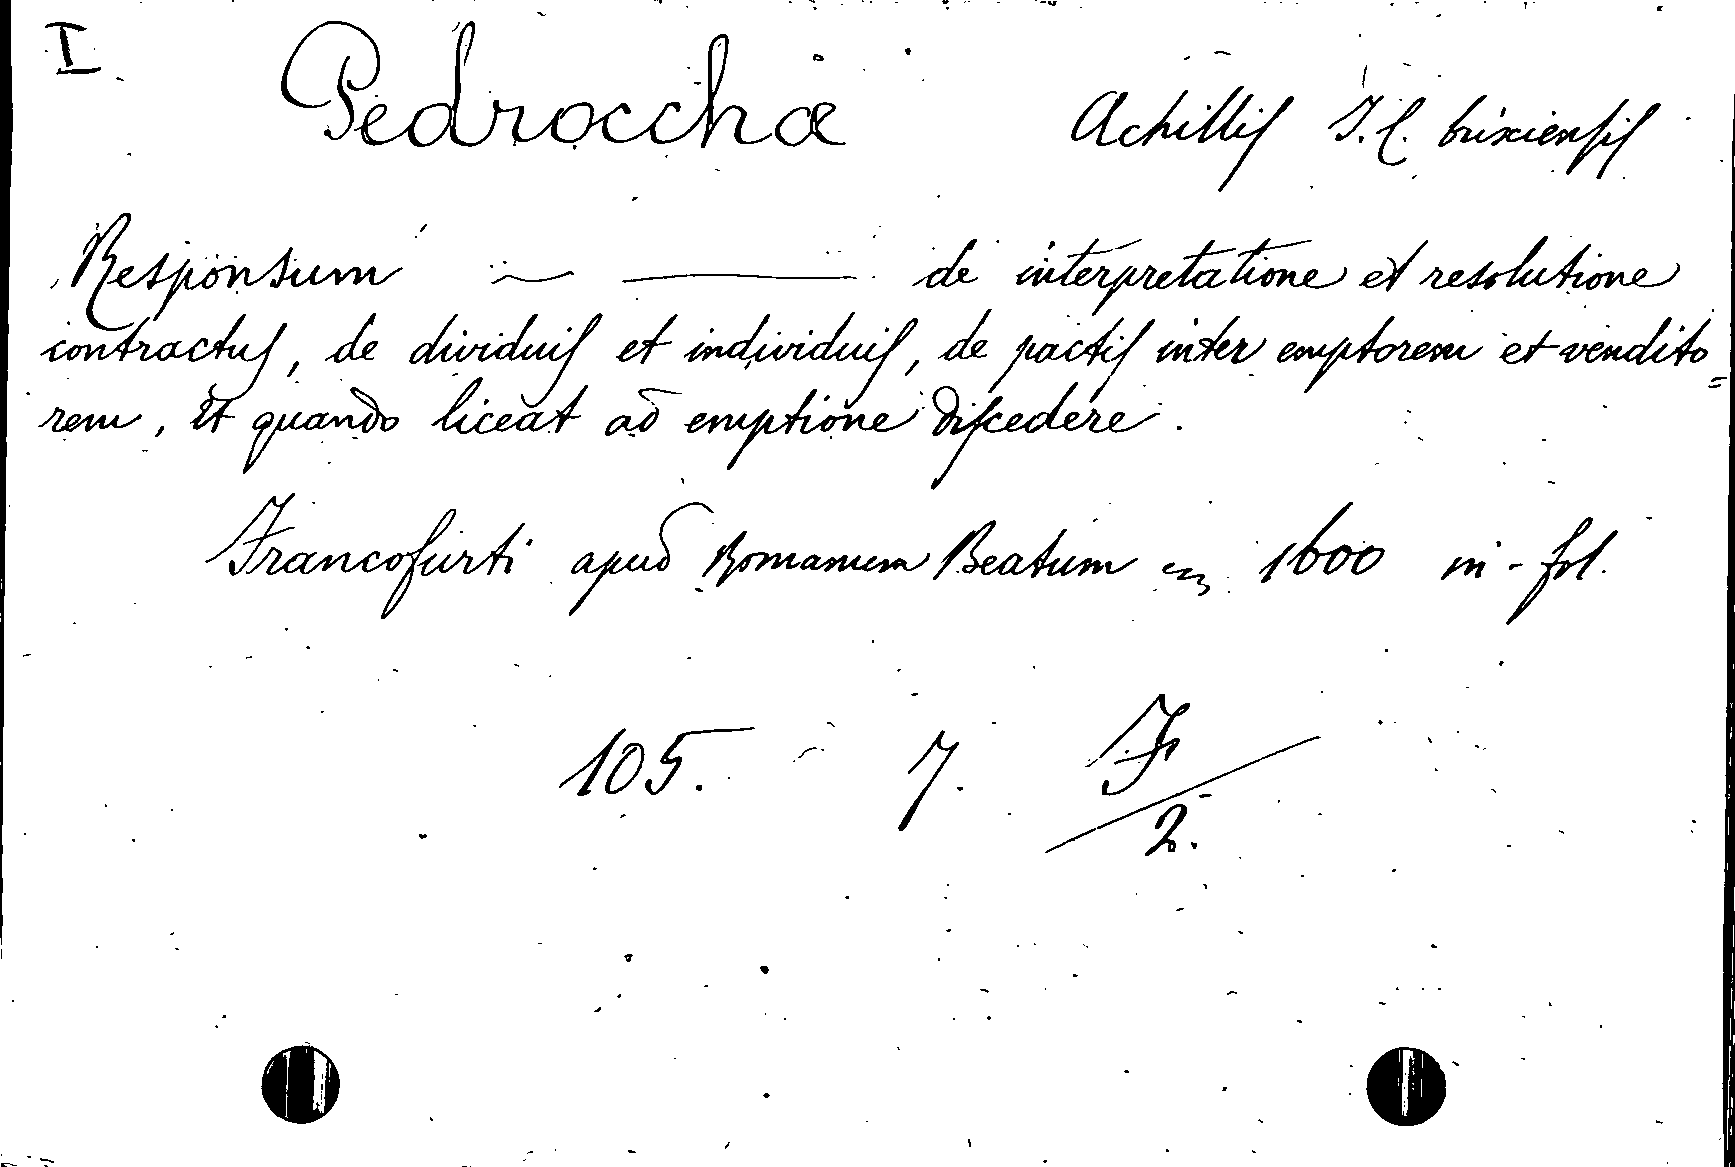 I
Pedrocchæ Achillis I. C. brixiensis
Responsum ~ — de interpretatione et resolutione
contractus, de dividuis et individuis, de pactis inter emptorem et vendito=
rem, Et quando liceat ad emptione discedere.
Francofurti apud Romanum Beatum 1600 in-fol.
105. 7. F/2.